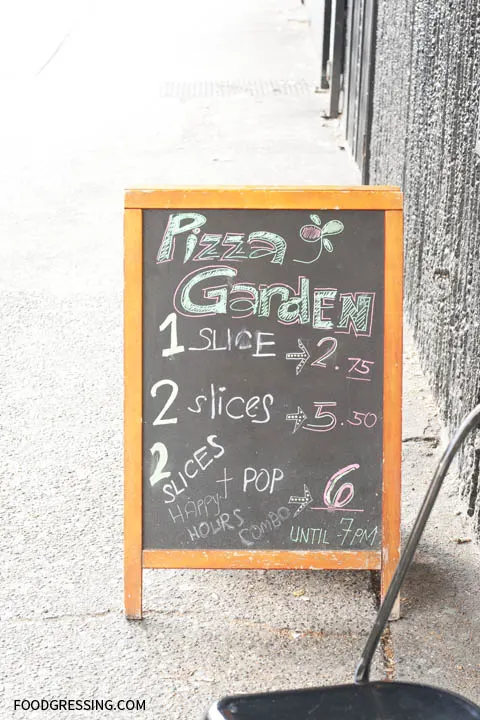 Pizza
GardEN
1 SLICE → 2.75
2 slices → 5.50
2 SLICES + POP → 6
HAPPY HOURS COMBO
UNTIL 7PM
FOODGRESSING.COM